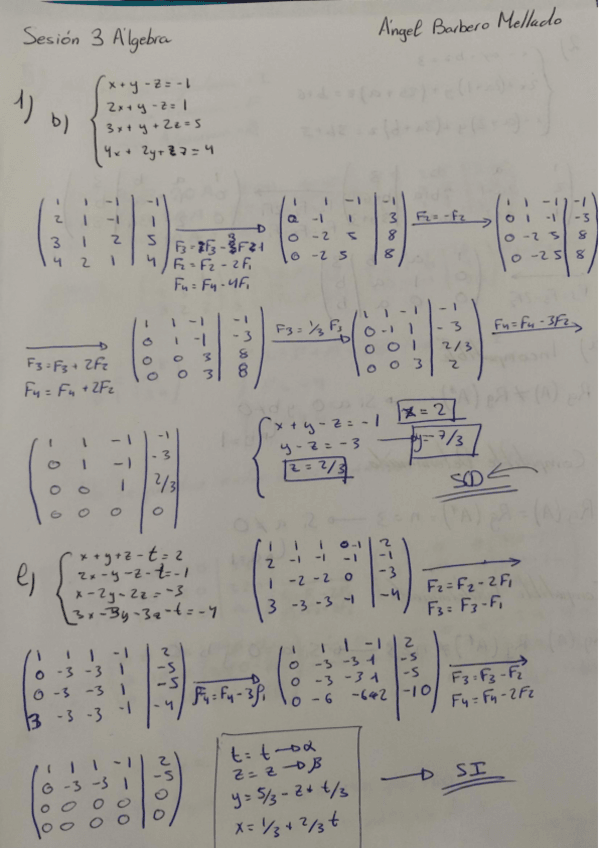 Sesión 3 Álgebra
Ángel Barbero Mellado
1)
b)
x + y - z = -1
2x + y - z = 1
3x + y + 2z = 5
4x + 2y + z = 4
1 1 -1 | -1
2 1 -1 | 1
3 1 2 | 5
4 2 1 | 4
F2 = F2 - 2F1
F4 = F4 - 4F1
1 1 -1 | -1
0 -1 1 | 3
0 -2 5 | 8
0 -2 5 | 8
F2 = -F2
1 1 -1 | -1
0 1 -1 | -3
0 -2 5 | 8
0 -2 5 | 8
F3 = F3 + 2F2
F4 = F4 + 2F2
1 1 -1 | -1
0 1 -1 | -3
0 0 3 | 8
0 0 3 | 8
F3 = 1/3 F3
1 1 -1 | -1
0 -1 1 | -3
0 0 1 | 2/3
0 0 3 | 2
F4 = F4 - 3F2
1 1 -1 | -1
0 1 -1 | -3
0 0 1 | 2/3
0 0 0 | 0
x + y - z = -1
y - z = -3
z = 2/3
x = 2
y = 7/3
SCD
e)
x + y + z - t = 2
2x - y - z - t = -1
x - 2y - 2z = -3
3x - 3y - 3z - t = -4
1 1 1 -1 | 2
2 -1 -1 -1 | -1
1 -2 -2 0 | -3
3 -3 -3 -1 | -4
F2 = F2 - 2F1
F3 = F3 - F1
1 1 1 -1 | 2
0 -3 -3 1 | -5
0 -3 -3 1 | -5
3 -3 -3 -1 | -4
F4 = F4 - 3F1
1 1 1 -1 | 2
0 -3 -3 1 | -5
0 -3 -3 1 | -5
0 -6 -6 2 | -10
F3 = F3 - F2
F4 = F4 - 2F2
1 1 1 -1 | 2
0 -3 -3 1 | -5
0 0 0 0 | 0
0 0 0 0 | 0
t = t → α
z = z → β
y = 5/3 - z + t/3
x = 1/3 + 2/3 t
SI